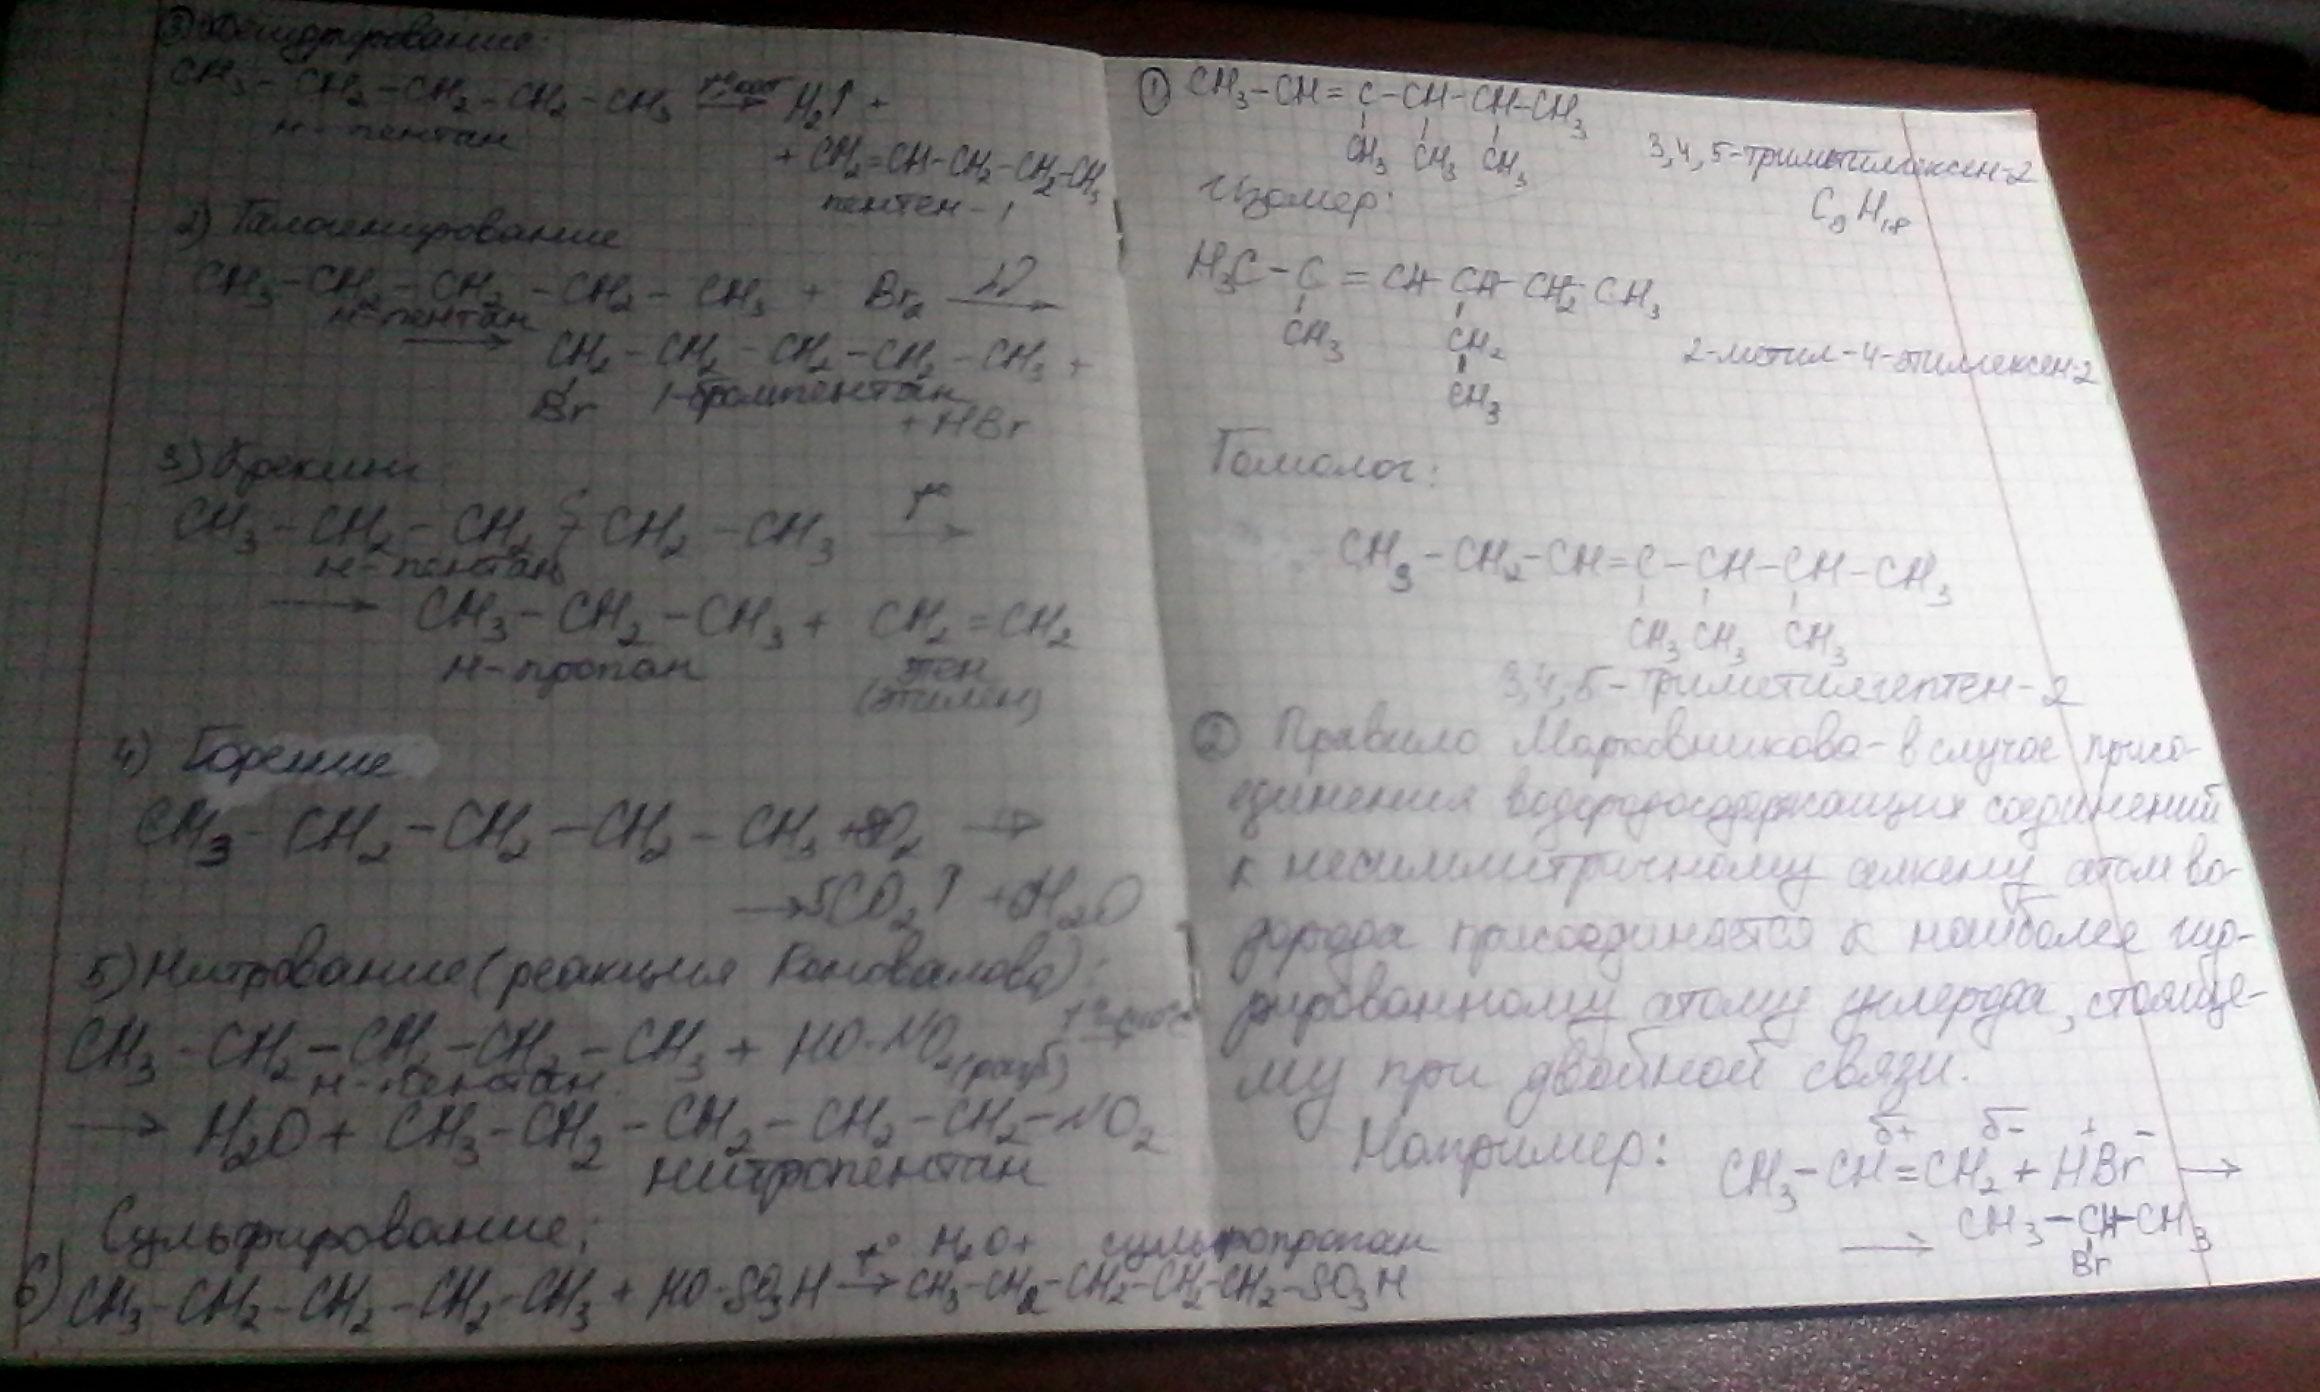 Дегидрирование:
CH3 - CH2 - CH2 - CH2 - CH3 → H2↑ +
н-пентан
+ CH2=CH-CH2-CH2-CH3
пентен-1
2) Галогенирование
CH3 - CH2 - CH2 - CH2 - CH3 + Br2 →
н-пентан
→ CH2 - CH2 - CH2 - CH2 - CH3 +
Br 1-бромпентан
+ HBr
3) Крекинг
CH3 - CH2 - CH2 CH2 - CH3 t° →
н-пентан
→ CH3 - CH2 - CH3 + CH2 = CH2
н-пропан этен
(этилен)
4) Горение
CH3 - CH2 - CH2 - CH2 - CH3 + 8O2 →
→ 5CO2↑ + 6H2O
5) Нитрование (реакция Коновалова):
CH3 - CH2 - CH2 - CH2 - CH3 + HO-NO2 (разб) →
н-пентан
→ H2O + CH3 - CH2 - CH2 - CH2 - CH2 - NO2
нитропентан
Сульфирование:
H2O + сульфопропан
6) CH3 - CH2 - CH2 - CH2 - CH3 + HO-SO3H t° → CH3-CH2-CH2-CH2-CH2-SO3H
① CH3-CH=C-CH-CH-CH3
CH3 CH3 CH3
3,4,5-триметилгексен-2
C9H18
Изомер:
H3C - C = CH-CH-CH2-CH3
CH3 CH2
CH3
2-метил-4-этилгексен-2
Гомолог:
CH3-CH2-CH=C-CH-CH-CH3
CH3 CH3 CH3
3,4,5-триметилгептен-2
② Правило Марковникова - в случае присо-
единения водородосодержащих соединений
к несимметричному алкену атом во-
дорода присоединяется к наиболее гид-
рированному атому углерода, стояще-
му при двойной связи.
Например: CH3-CH=CH2 + HBr →
δ+ δ- + -
→ CH3-CH-CH3
Br